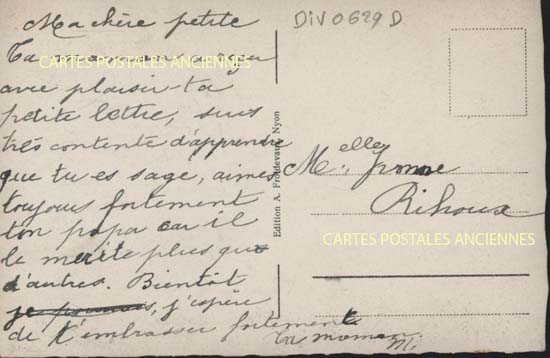 DIV0629D
Ma chère petite
Ta maman a reçu
CARTES POSTALES ANCIENNES
avec plaisir ta
petite lettre, suis
très contente d'apprendre
que tu es sage, aimes
toujours fortement
ton papa car il
le merite plus que
d'autres. Bientôt
je, j'espère
de t'embrasser fortement
ta maman
Mi
Edition A. Froidevaux, Nyon
Melle Yvonne
Rihoux
CARTES POSTALES ANCIENNES